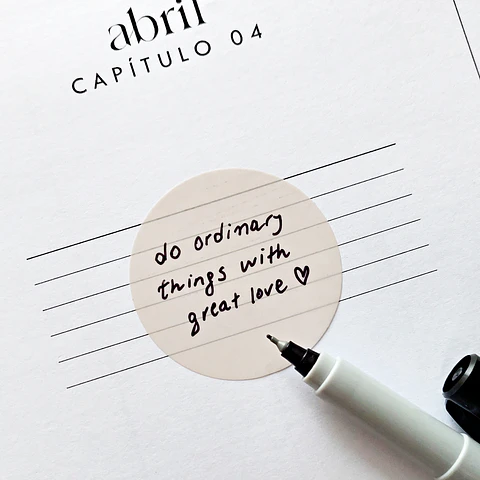 abril
CAPÍTULO 04
do ordinary
things with
great love ♡